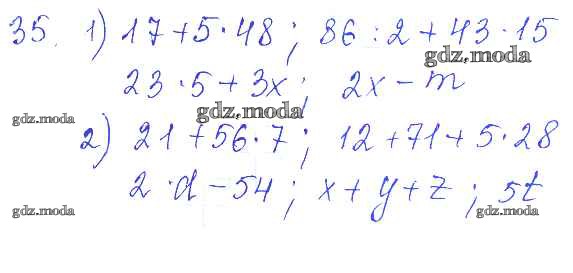 35. 1) 17 + 5 · 48 ; 86 : 2 + 43 · 15
gdz.moda
23 · 5 + 3x ; 2x - m
gdz.moda
gdz.moda
2) 21 + 56 · 7 ; 12 + 71 + 5 · 28
2 · d - 54 ; x + y + z ; 5t
gdz.moda
gdz.moda